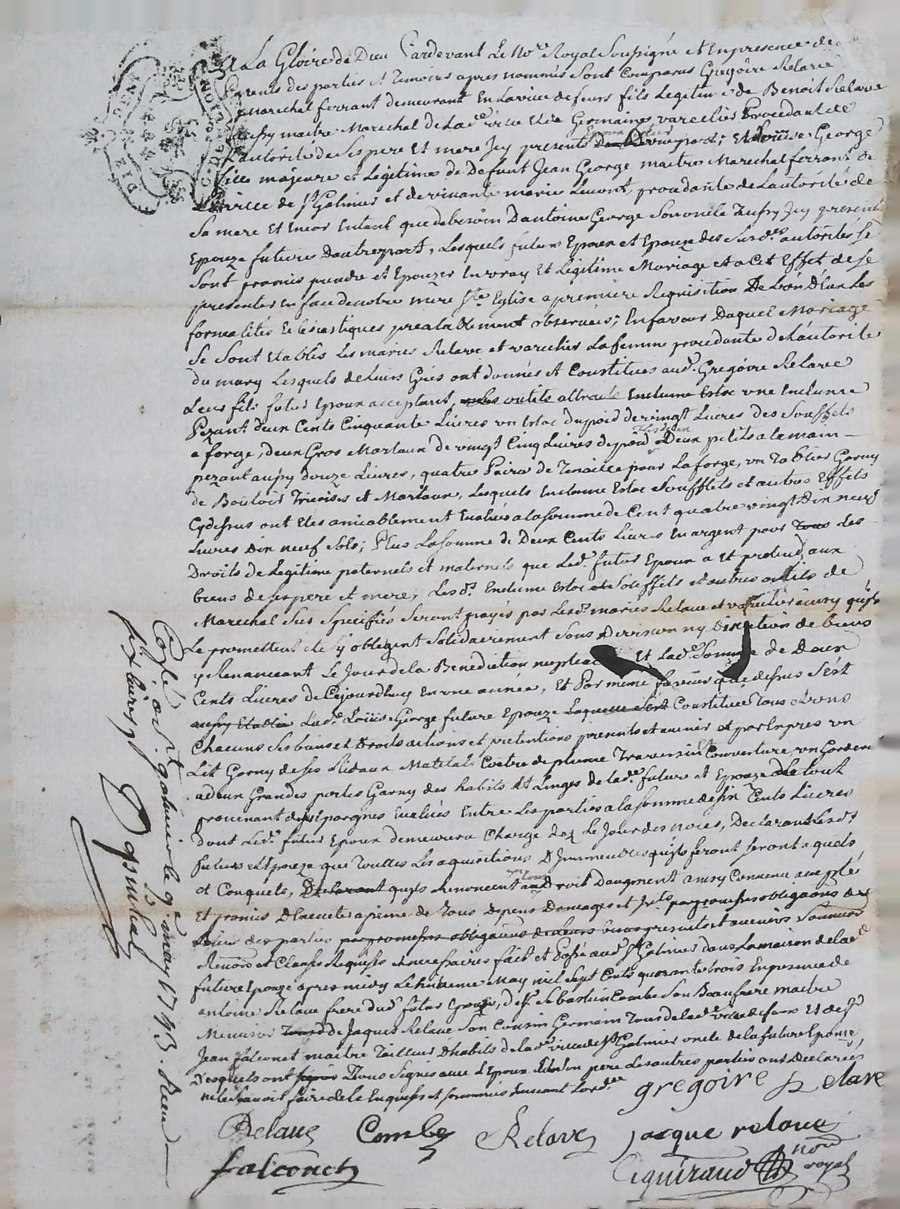 A La Gloire de Dieu Pardevant Le No.re Royal Soussigné et En presence des
Parents des parties et Temoins apres nommés Sont Comparus Grégoire Relave
Marechal ferrant demeurant En La ville de feurs fils Legitime de Benoit Relave
Aussy maitre Marechal de Lad. ville et de Germaine varellies Procedant de
L'autorité de Ses pere et mere Jcy presents d'une part; Et George
fille majeure et Légitime de Deffunt Jean George maitre Marechal ferrant de
La ville de St Galmier et de vivante marie procedante de L'autorité de
Sa mere et Encor Entant que de besoin D'antoine George Son oncle Aussy Jcy present
Epouze future D'autre part, Lesquels futurs Epoux et Epouze des Susd.es autorités Se
Sont promis prendre et Epouzer En vray Et Légitime Mariage et a Cet Effet de Se
presenter En face de Notre mère Ste Eglise a premiere Requisition De L'un D'Eux Les
formalités Eclésiastiques prealablement observées; En faveur Duquel Mariage
Se Sont Etablis Les mariés Relave et varellies La femme procedante de L'autorité
du mary Lesquels de Leurs Grés ont donnés et Constitués aud. Grégoire Relave
Leur fils futur Epoux acceptant, une Enclume
Pezant deux Cents Cinquante Livres un Estoc du poid de vingt Livres des Soufflets
a forge, deux Gros Marteaux de vingt Cinq Livres de poid Deux petits a la main
pezant aussy douze Livres, quatre Paires de Tenailles pour La forge, un Tablier Garny
de Boutoir Tricoises et Marteaux, Lesquels Enclume Estoc Soufflets et autres Effets
Cydessus ont Etes amicablement Evalués a la somme de Cent quatre vingt Dix neuf
Livres Dix neuf Sols; Plus La Somme de Deux Cents Livres En argent pour Tous des
Droits de Légitime paternels et maternels que Led. futur Epoux a et pretend aux
biens de Ses pere et mere, Lesd. Enclume Estoc et Soufflets et autres outils de
Marechal Sus Specifiés Seront payés par Lesd. mariés Relave et varellies ainsy quils
Le promettent et S'y obligent Solidairement Sous Division ny Discution de biens
y Renonceant Le Jour de La Benediction nuptialle Et Lad. Somme de Deux
Cents Livres de Cejourdhuy En une année, Et Par meme faveur que dessus S'est
Lad. Loüise George future Epouze Constituée Tous
Chacuns Ses biens et Droits actions et pretentions presents et avenir et par Expres un
Lit Garny de Ses Rideaux Matelas Coitre de plume Traversin Couverture un Garderobe
a deux Grandes portes Garny des habits Et Linges de Lad. future et Epouze Le tout
provenant de Ses Epargnes Evalués Entre Les parties a la somme de Six Cents Livres
Dont Led. futur Epoux demeurera Chargé dez Le Jour des noces, Déclarant Lesd.
futurs et Epouze que Toutes Les aquisitions D'Jmmeubles quils feront Seront aquets
et Conquets, quils Renoncent au Droit Daugment ainsy Convenu
Et promis D'Executer a peine de Tous Depens Damages et Jnts par promesses obligations de
biens des parties
Renon et Clauses Requises et necessaires fait et Passé aud. St Galmier dans La maison de Lad.
future Epouze apres midy Le huitieme May mil Sept Cents quarante trois En presence de
Antoine Relave frere dud. futur Epoux, de Sr Sebastien Combe Son Beau frere maitre
Menuisier de Jaques Relave Son Cousin Germain Tous de Lad. ville de feurs Et de Sr
Jean falconet maitre Tailleur D'habits de Lad. ville de St Galmier oncle de La future Epouse
Lesquels ont Tous Signés avec L'Epoux Les autres parties ont Déclarées
ne le Scavoir faire de ce Enquises et Sommées Suivant Lord.ce
gregoire Relave
Relave Combe Relave jacque relave
falconet Ciquiraud no.re royal
Controlé a St galmier le 9e may 1743 Recu
six Livres